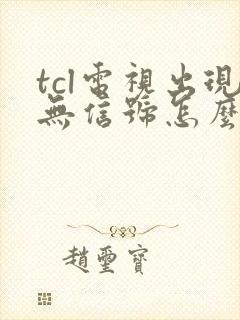 tcl電視出現
無信號怎麼
趙璽寶